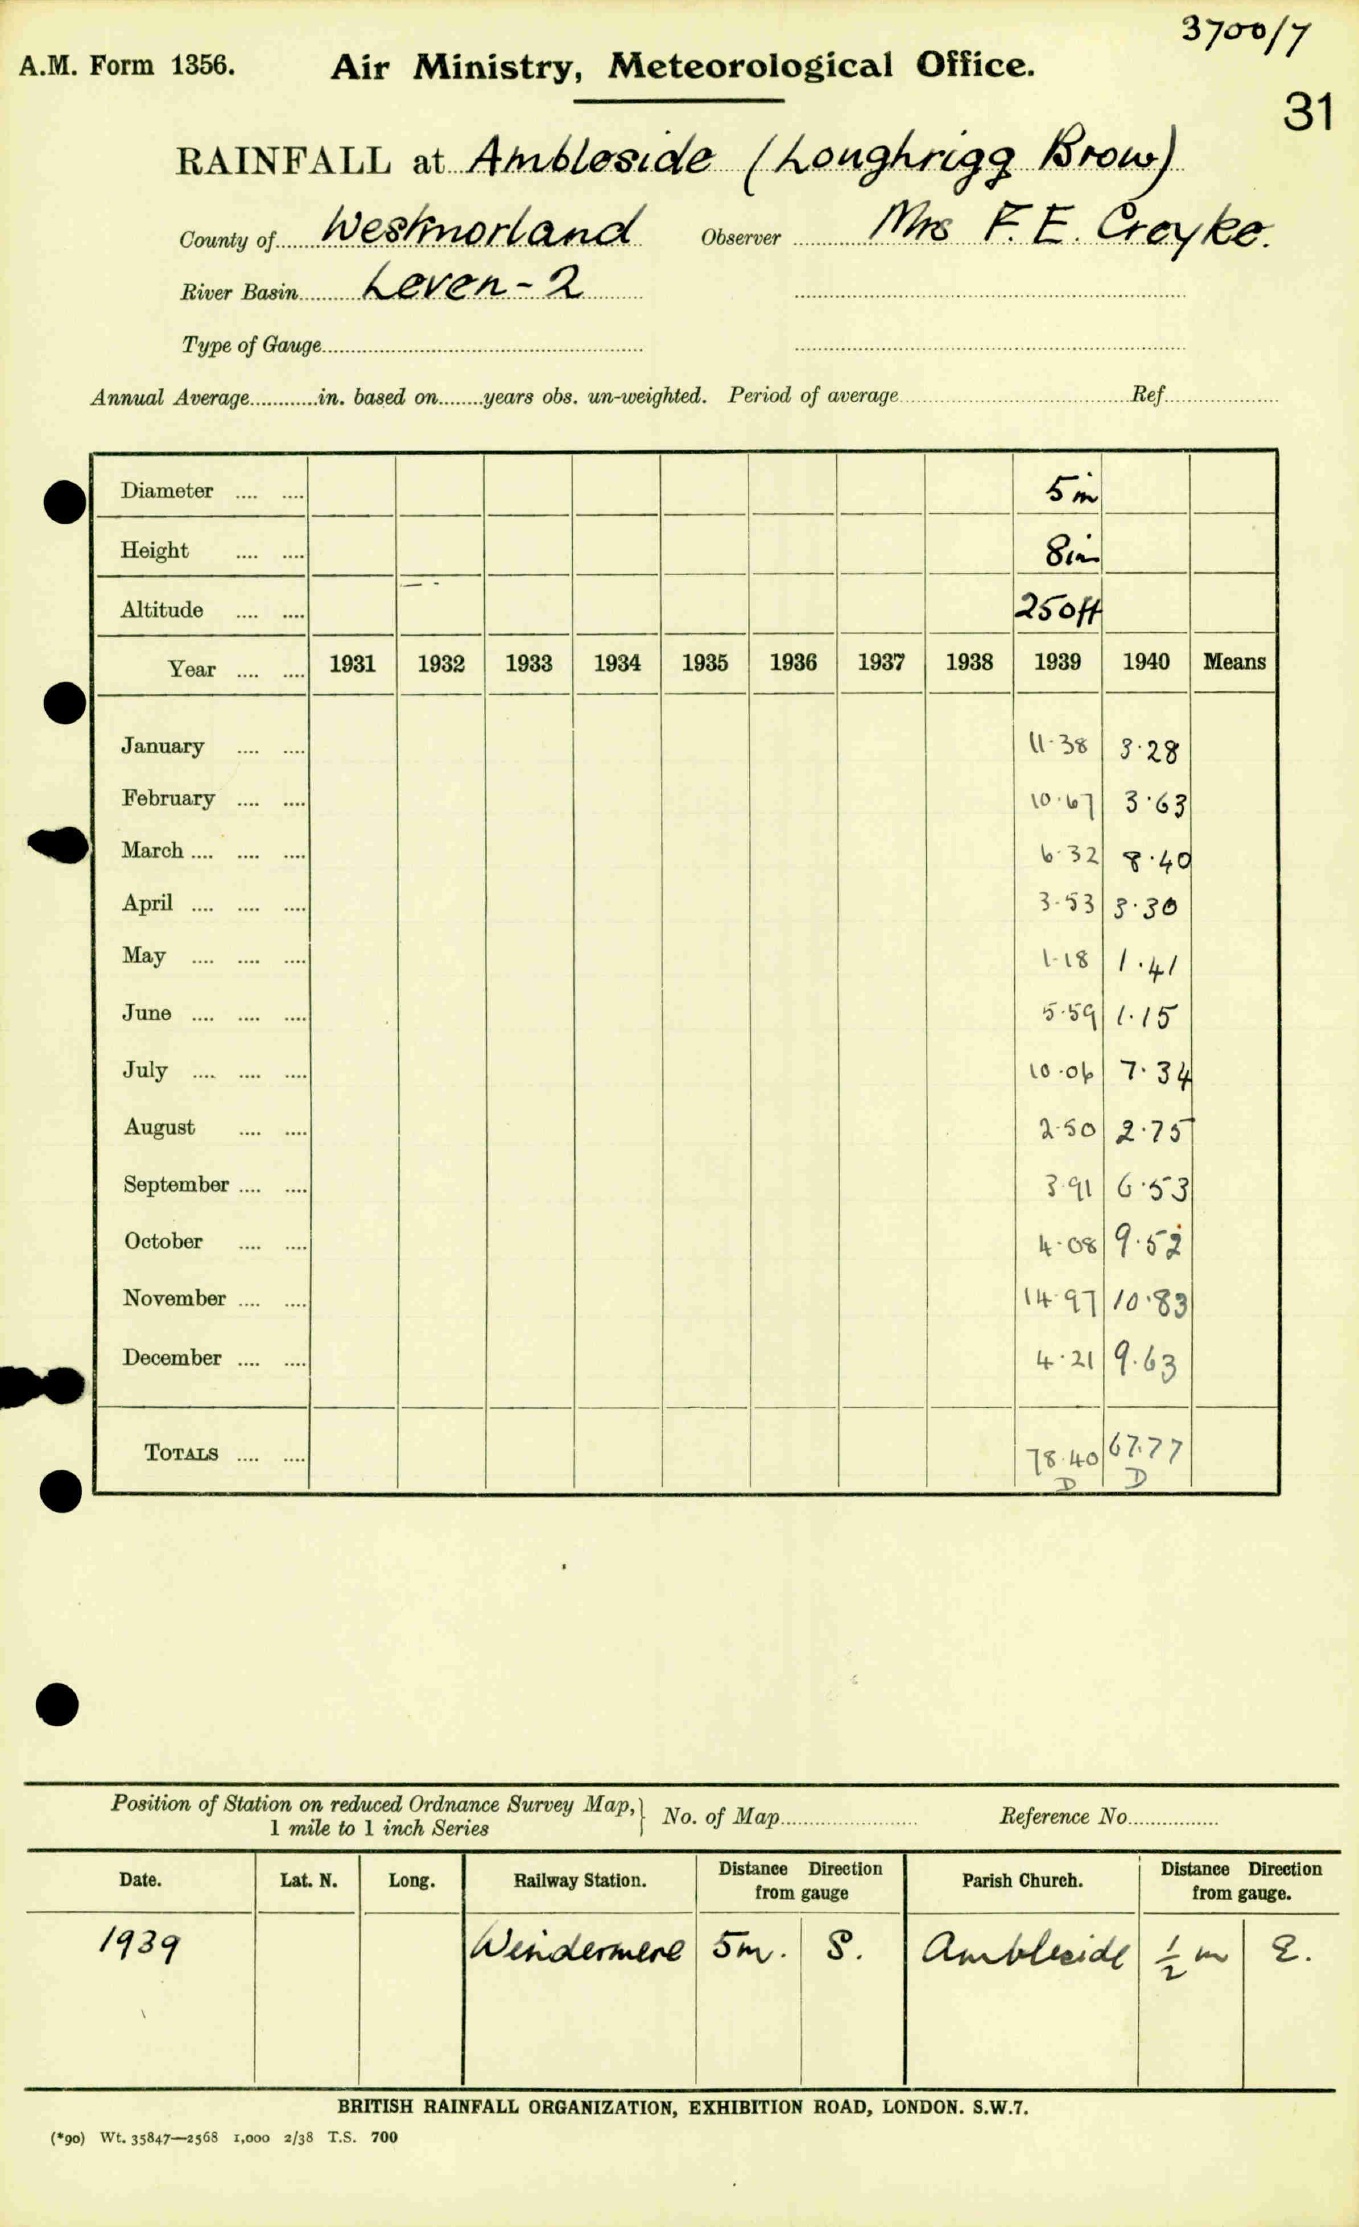 3700/7
A.M. Form 1356. Air Ministry, Meteorological Office.
31
RAINFALL at Ambleside (Loughrigg Brow)
County of Westmorland Observer Mrs F. E. Creyke.
River Basin Leven-2
Type of Gauge
Annual Average in. based on years obs. un-weighted. Period of average Ref.
Diameter 5 in
Height 8 in
Altitude 250 ft
Year 1931 1932 1933 1934 1935 1936 1937 1938 1939 1940 Means
January 11.38 3.28
February 10.67 3.63
March 6.32 8.40
April 3.53 3.30
May 1.18 1.41
June 5.59 1.15
July 10.06 7.34
August 2.50 2.75
September 3.91 6.53
October 4.08 9.52
November 14.97 10.83
December 4.21 9.63
TOTALS 78.40 67.77
D D
Position of Station on reduced Ordnance Survey Map, 1 mile to 1 inch Series } No. of Map Reference No.
Date. Lat. N. Long. Railway Station. Distance Direction from gauge Parish Church. Distance Direction from gauge.
1939 Windermere 5 m. S. Ambleside ½ m E.
BRITISH RAINFALL ORGANIZATION, EXHIBITION ROAD, LONDON. S.W.7.
(*90) Wt. 35847—2568 1,000 2/38 T.S. 700